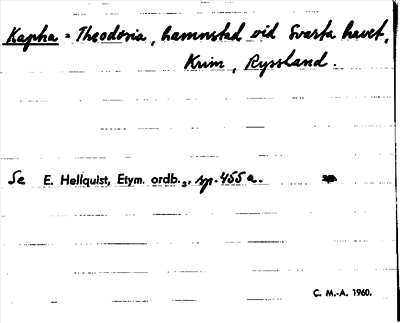 Kapha = Theodosia, hamnstad vid Svarta havet,
Krim, Ryssland.
Se E. Hellquist, Etym. ordb.3, sp. 455 a.
C. M.-A. 1960.